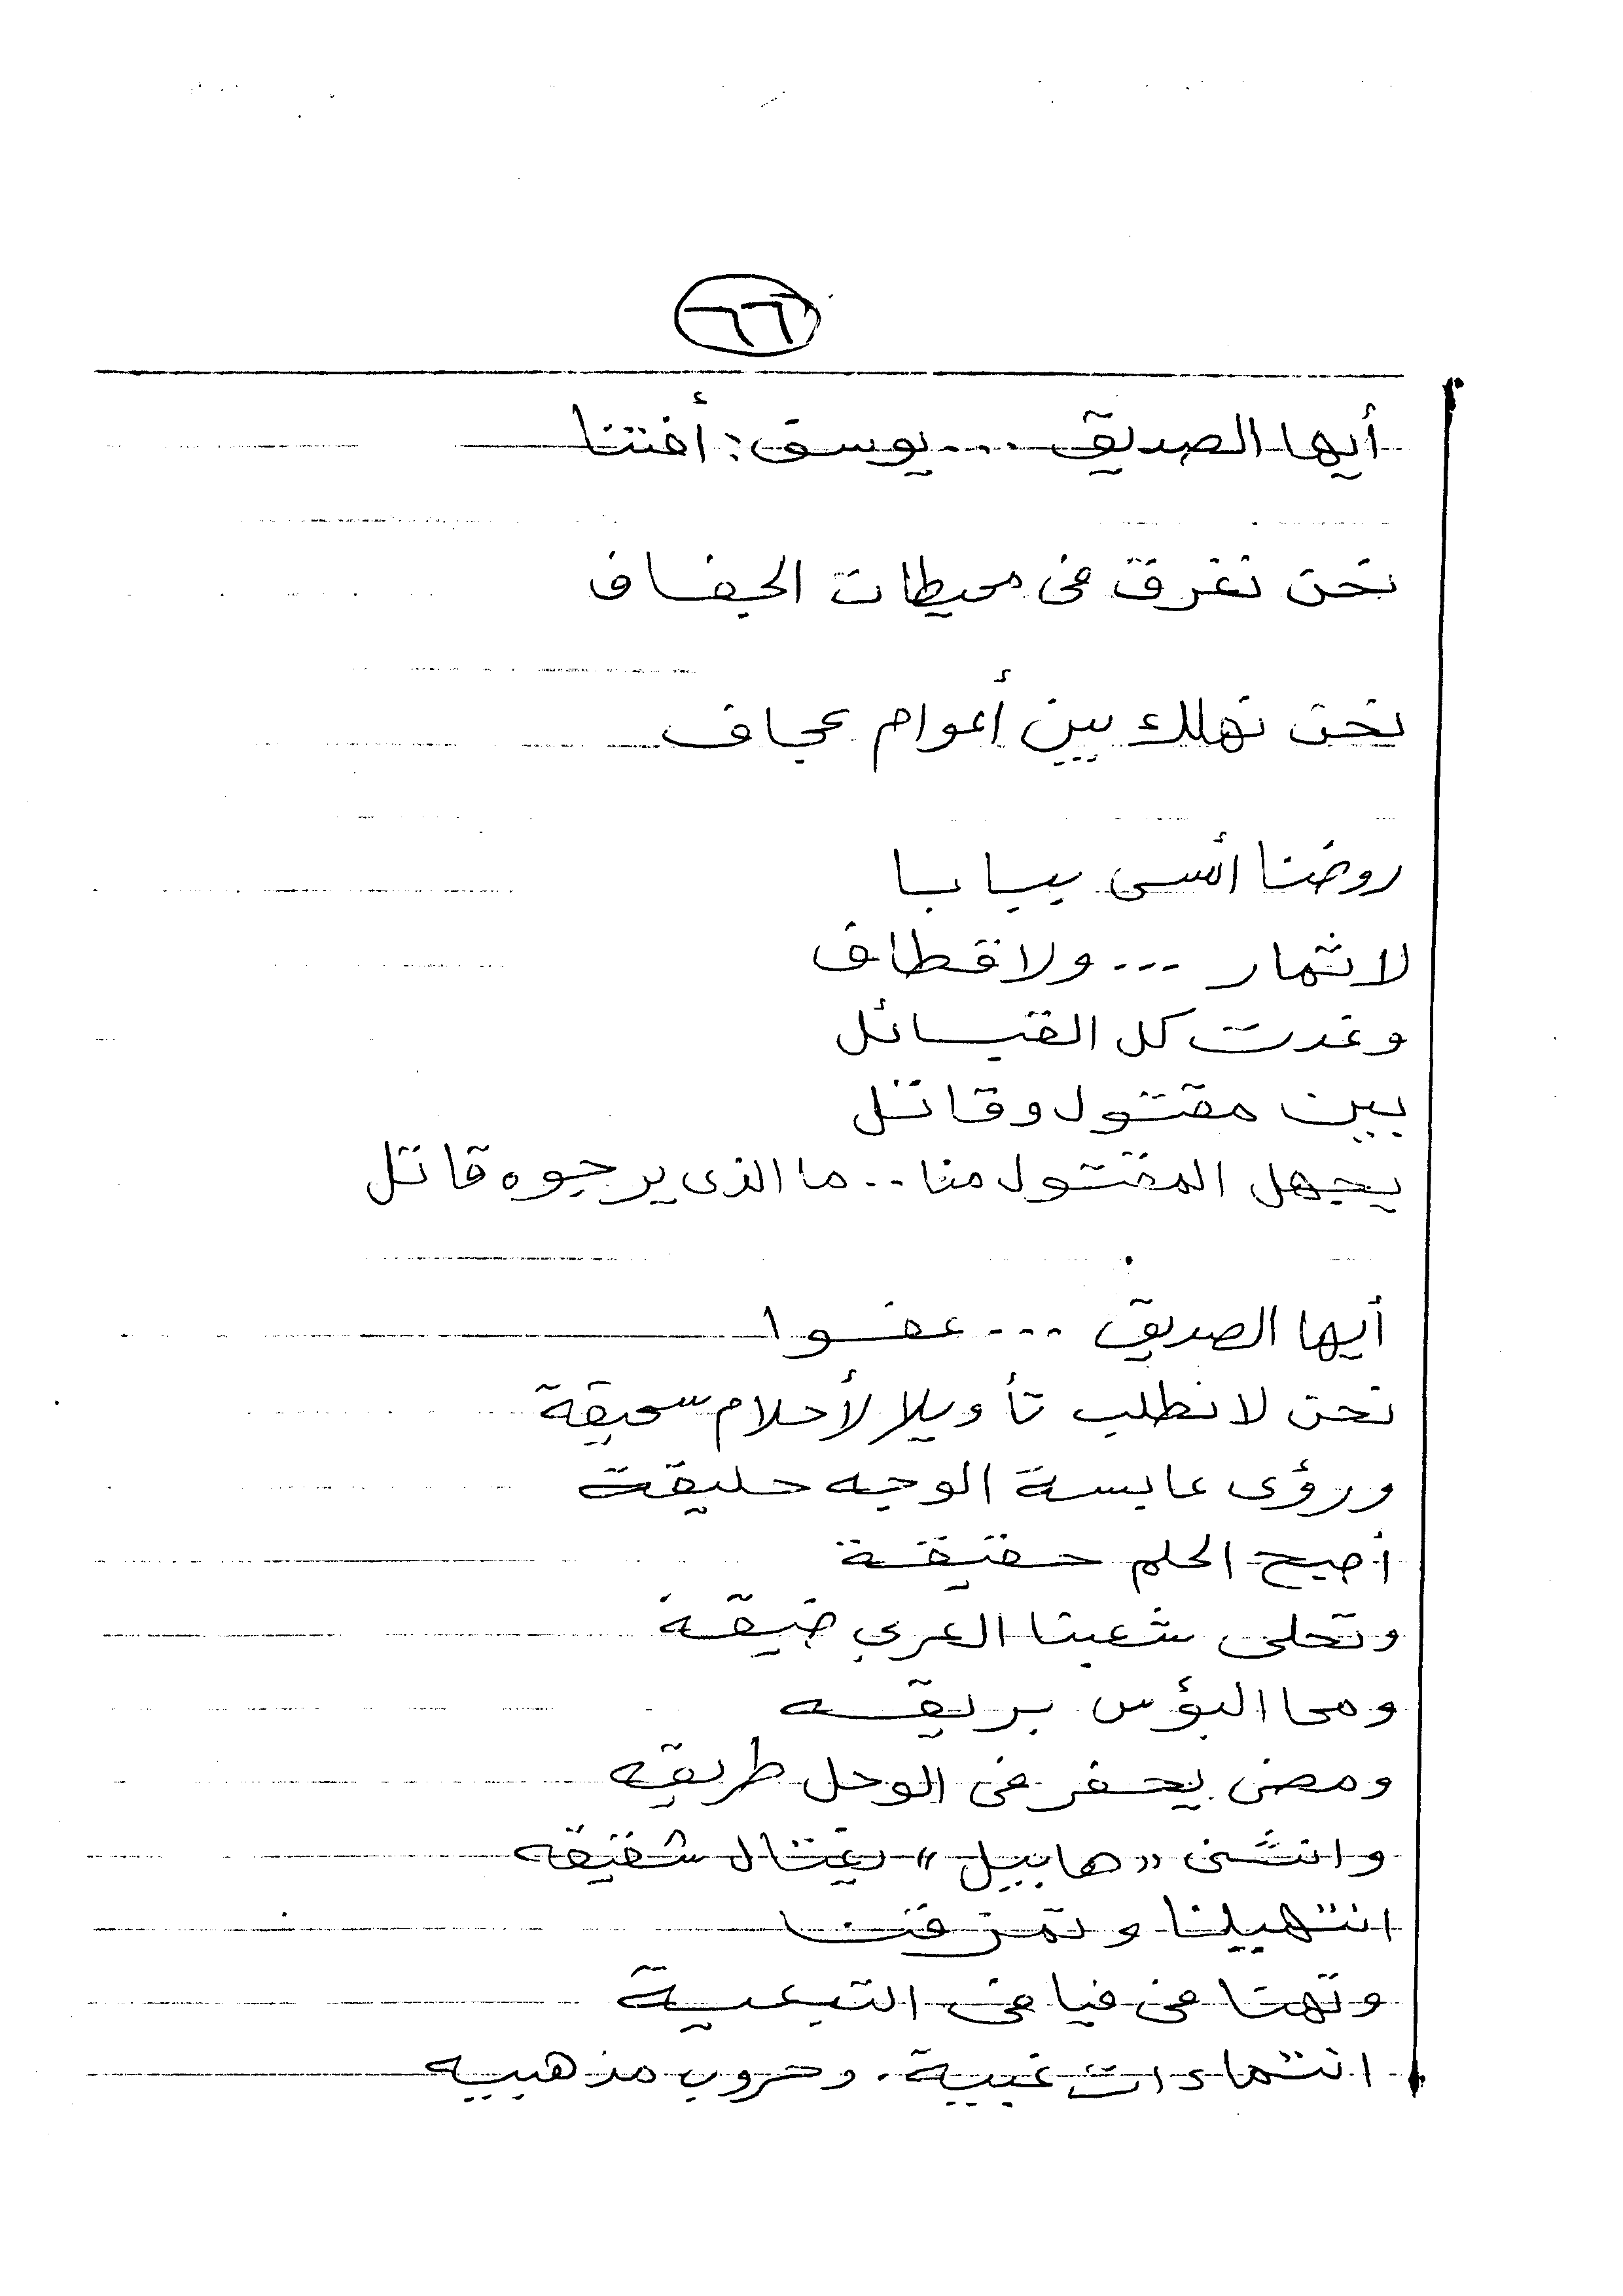 ٦٦
أيها الصديق ... يوسف: أفتنا
نحن نغرق فى محيطات الجفاف
نحن نهلك بين أعوام عجاف
روضنا أمسى يبابا
لا ثمار ... ولا قطاف
وغدت كل القبائل
بين مقتول وقاتل
يجهل المقتول منا .. ما الذى يرجوه قاتل
أيها الصديق ... عفوا
نحن لا نطلب تأويلا لأحلام سحيقة
ورؤى عابسة الوجه حليقة
أصبح الحلم حقيقة
وتحلى شعبنا العربي ضيقه
ومحا البؤس بريقه
ومضى يحفر فى الوحل طريقه
وانثنى «هابيل» يغتال شقيقه
انتهينا وتمزقنا
وتهنا فى فيافى التبعية
انتماءات غبية. وحروب مذهبيه